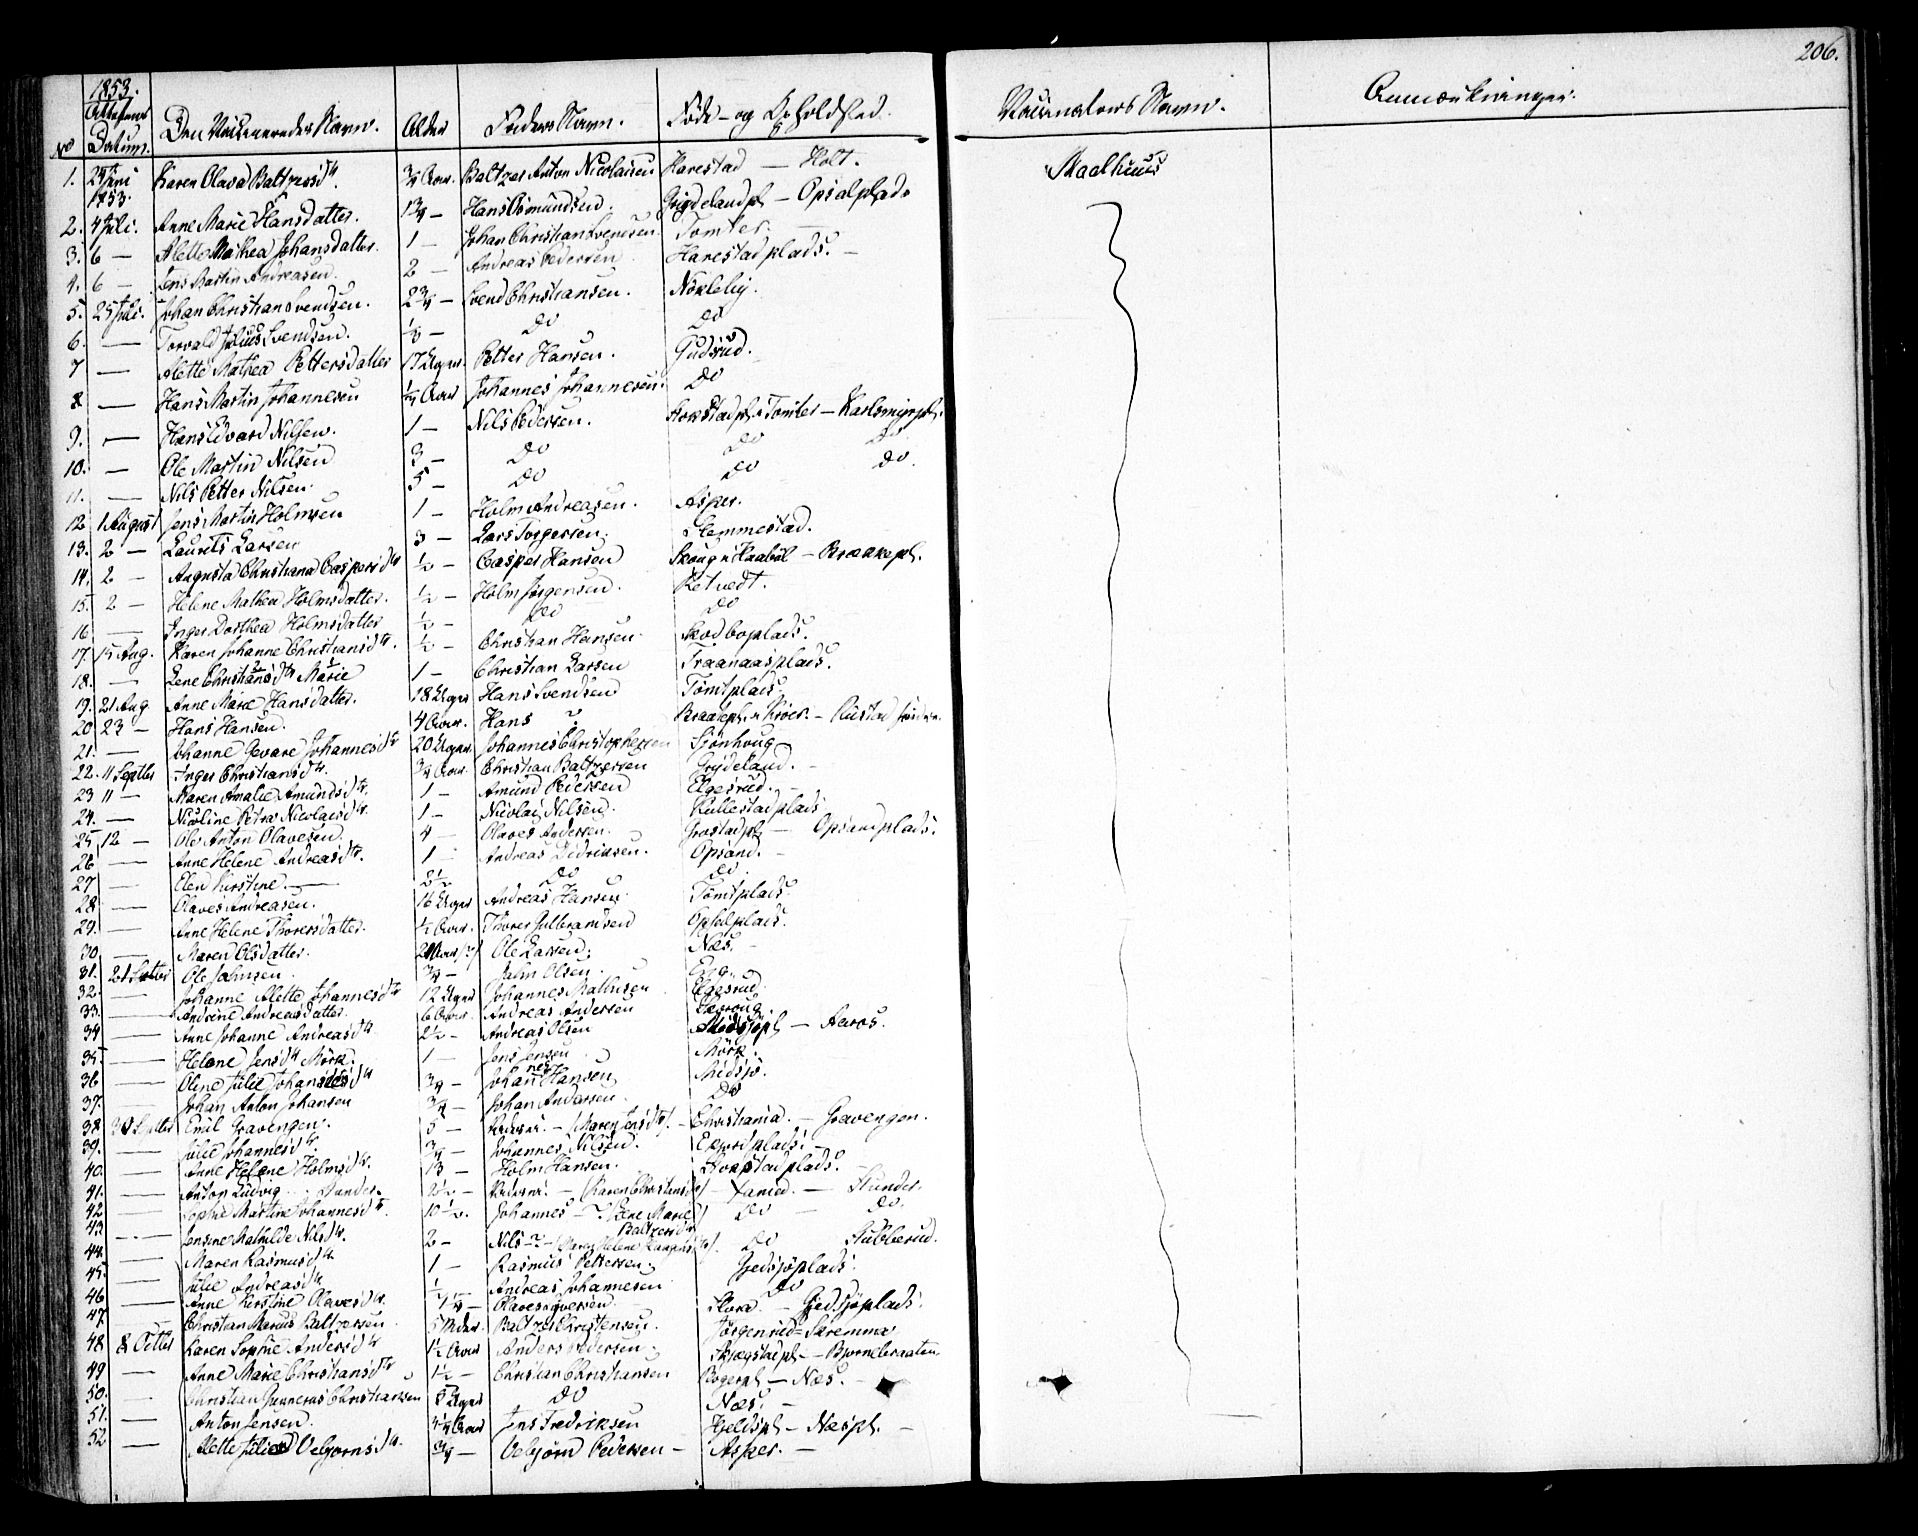 206.
1853.
No Attestens Datum. Den Vaccineredes Navn. Alder Faders Navn. Føde- og Opholdsted. Vaccinateurs Navn. Anmærkninger.
1. 24 Juni 1853. Karen Olava Baltzersdtr. 3/4 Aar. Baltzer Anton Nicolaisen Harestad — Holt. Maalhuus
2. 4 Juli. Anne Marie Hansdatter. 1 3/4 — Hans Osmundsen. Grydelandpl — Opsalplads
3. 6 — Alette Mathea Johansdatter. 1 — Johan Christian Svendsen Tomter. —
4. 6 — Jens Martin Andreasen. 2 — Andreas Pedersen Harestadplads. —
5. 25 Juli. Johan Christian Svendsen. 2 3/4 — Svend Christiansen. Nökleby.
6. — Torvald Julius Svendsen. 1/2 — Do Do
7 — Alette Mathea Pettersdatter 17 Uger. Petter Hansen. Gudsrud.
8 — Hans Martin Johannesen 1/4 Aar Johannes Johannesen. Do
9. — Hans Edvard Nilsen. 1 — Nils Pedersen. Hokstadpl. Tomter — Karlsmyrpl.
10. — Ole Martin Nilsen 3 — Do Do Do
11. — Nils Petter Nilsen. 5 — Do Do Do.
12 1 August Jens Martin Holmsen 1 — Holm Andreasen. Asper.
13. 2 — Laurits Larsen 3 — Lars Torgersen. Slemmestad.
14. 2 — Augusta Christiana Caspersdtr 1/2 — Casper Hansen Skoug i Haabøl — Brækkepl.
15. 2 — Helene Mathea Holmsdatter. 1/2 — Holm Jørgensen. Retvedt.
16 — Inger Dorthea Holmsdatter 1/2 — Do Do
17. 15 Aug. Karen Johanne Christiansdtr. 1/2 — Christian Hansen. Skodboplads.
18. — Lene Christiansdtr Marie 1 — Christian Larsen Traanaasplads.
19. 21 Aug Anne Marie Hansdatter. 18 Uger Hans Svendsen Tomtplads.
20 23 — Hans Hansen. 4 Aar. Hans ? Braatepl. i Kroer. — Rustad
21. — Johanne Gevare Johannesdtr 20 Uger Johannes Christophersen Sjønhoug
22. 11 Septbr Inger Christiansdtr. 3/4 Aar. Christian Baltzersen Grydeland. —
23 11 — Maren Amalie Amundsdtr. 1 — Amund Pedersen Elgesrud. —
24. — Nicoline Petra Nicolaisdtr. 1 — Nicolai Nilsen. Kullestadplads
25 12 — Ole Anton Olavesen. 4 — Olaves Andersen. Grostadpl — Opsandplads.
26 — Anne Helene Andreasdtr. 1 — Andreas Didriksen. Opsand. —
27 — Elen Kirstine. — 2 1/2 Do Do.
28 — Olaves Andreasen. 16 Uger Andreas Hansen. Tomtplads.
29. — Anne Helene Thorersdatter. 1/2 Aar. Thorer Gulbrandsen Opsalplads.
30 — Maren Olsdatter. 2 Aar Ole Larsen. Næs. —
31. 21 Septbr Ole Jahnsen. 3/4 — Jahn Olsen. Eng.
32. — Johanne Alette Johannesdtr 12 Uger Johannes Mathisen Elgesrud.
33. — Andrine Andreasdatter. 6 Aar. Andreas Andersen
34 — Anne Johanne Andreasdtr. 2 1/2 — Andreas Olsen Midsjøpl — Aaros.
35. — Helene Jensdtr Mörk. 1 — Jens Jensen Mörk.
36 — Oline Julie Johannesdtr 3/4 — Johannes Hansen Midsjø.
37. — Johan Anton Johansen 3/4 — Johan Andersen Do
38 Septbr Emil Gravengen. 5 — (Maren Jensdtr). Christiania. — Gravengen.
39. — Julie Johannesdtr. 3/4 — Johannes Nilsen.
40. — Anne Helene Holmsdtr. 13 — Holm Hansen. Hokstadplads.
41. — Anton Ludvig Stunder. 2 1/2 — (Karen Christiansdtr) — Stunder.
42 — Sophie Martine Johannesdtr. 10 1/2. Johannes — ? (Lene Marie Baltzersdtr) Do — Do.
43. — Jensine Mathilde Nilsdtr. 2 — Nils — ? — Do Stubberud.
44. — Maren Rasmusdtr. 1 — Rasmus Pettersen. Gjedsjøplads.
45. — Julie Andreasdtr 1/2 — Andreas Johannesen Do
46 — Anne Kirstine Olavesdtr. 1 1/2 — Olaves Iversen. — Gjedsjøplads.
47. — Christian Marius Baltzersen Baltzer Christensen. Jørgensrud — Skremma
48 8 Octbr Karen Sophie Andersdtr 1 1/2 Aar Anders Pedersen. Skjægstadpl — Bjørnebraaten
49 — Anne Marie Christiansdtr 1 1/2 — Christian Christiansen Rogerpl — Næs. —
50. — Christian Gunerius Christiansen 8 Uger Do Næs. —
51. — Anton Jensen. Aar Jens Fredriksen Hjeldspl — Næspl. —
52 — Alette Julie Vebjørnsdtr. 3/4 — Vebjørn Pedersen — Asper. —